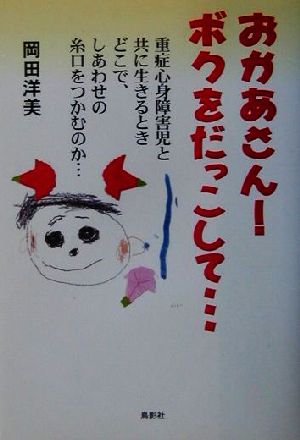 おかあさん!
ボクをだっこして…
重症心身障害児と
共に生きるとき
どこで、
しあわせの
糸口をつかむのか…
岡田洋美
鳥影社